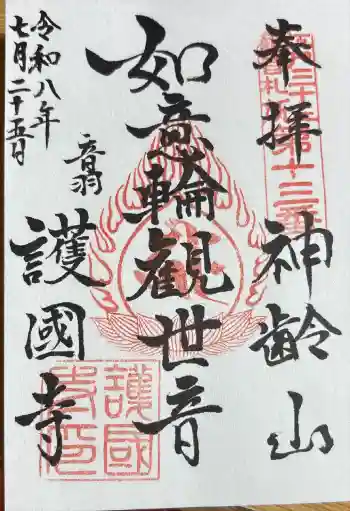 奉拝
神齢山
如意輪観世音
音羽
護國寺
令和八年
七月二十五日
護國
寺印